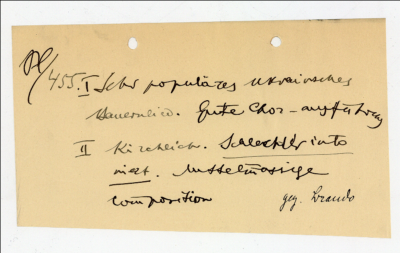 Pl/455. I Sehr populäres Ukrainisches
Bauernlied. Gute Chor-aufführung
II Kirchlich. Schlecht
Mittelmässige
Composition gez. Brando